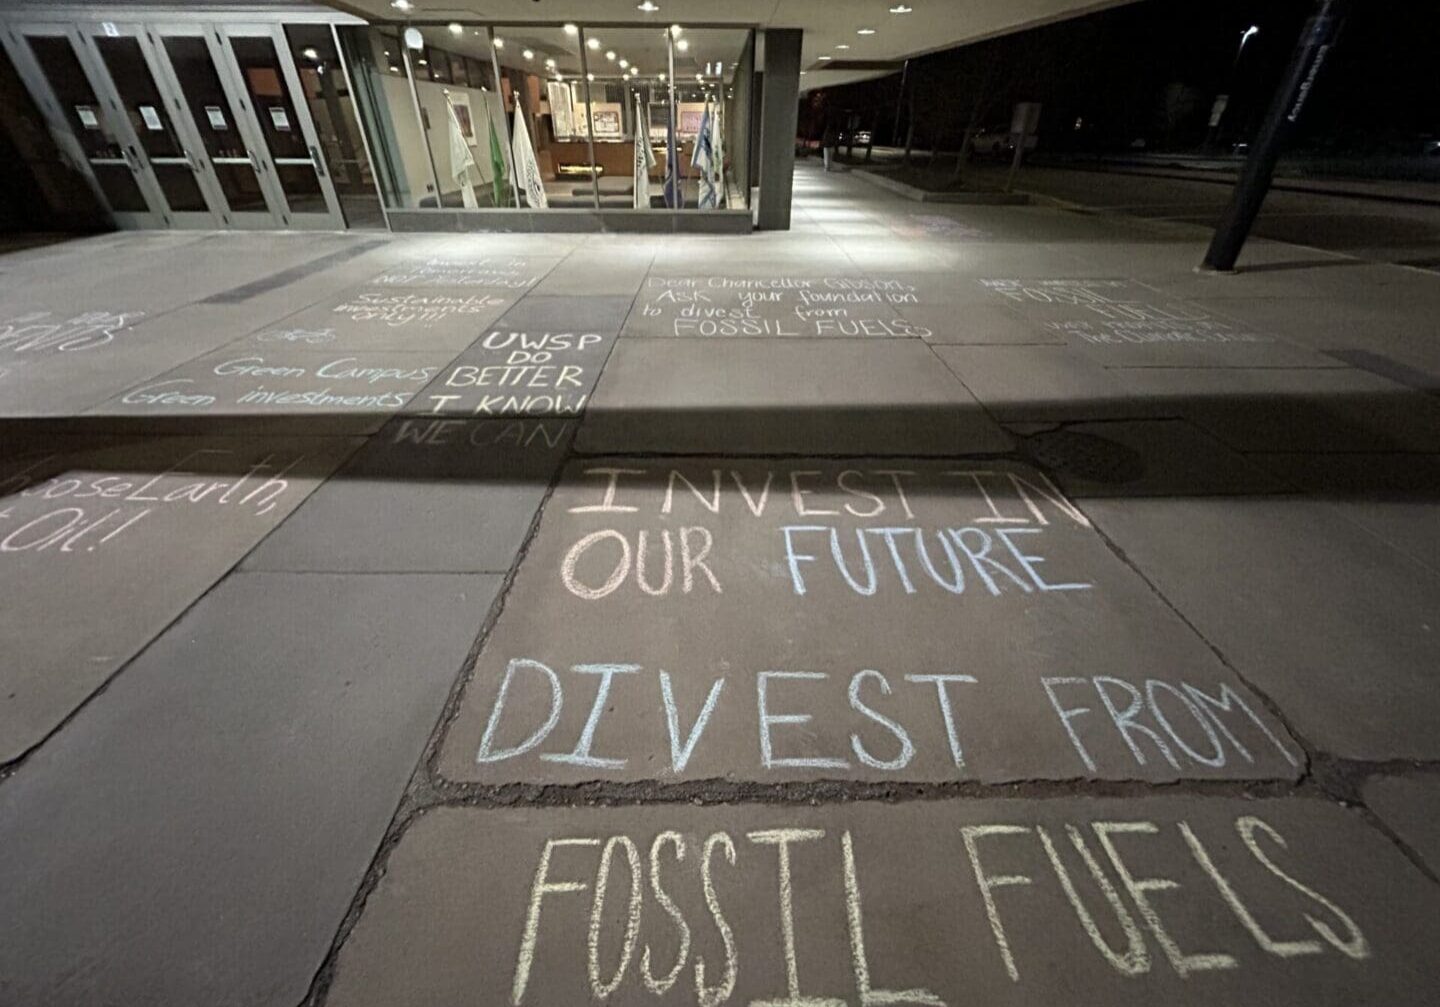 Invest in
Tomorrow
NOT Yesterday!
Sustainable
investments
only!!!
Green Campus
Green investments
UWSP
DO
BETTER
I KNOW
WE CAN
Dear Chancellor Gibson,
Ask your foundation
to divest from
FOSSIL FUELS
FOSSIL
FUELS
Earth,
Oil!
INVEST IN
OUR FUTURE
DIVEST FROM
FOSSIL FUELS